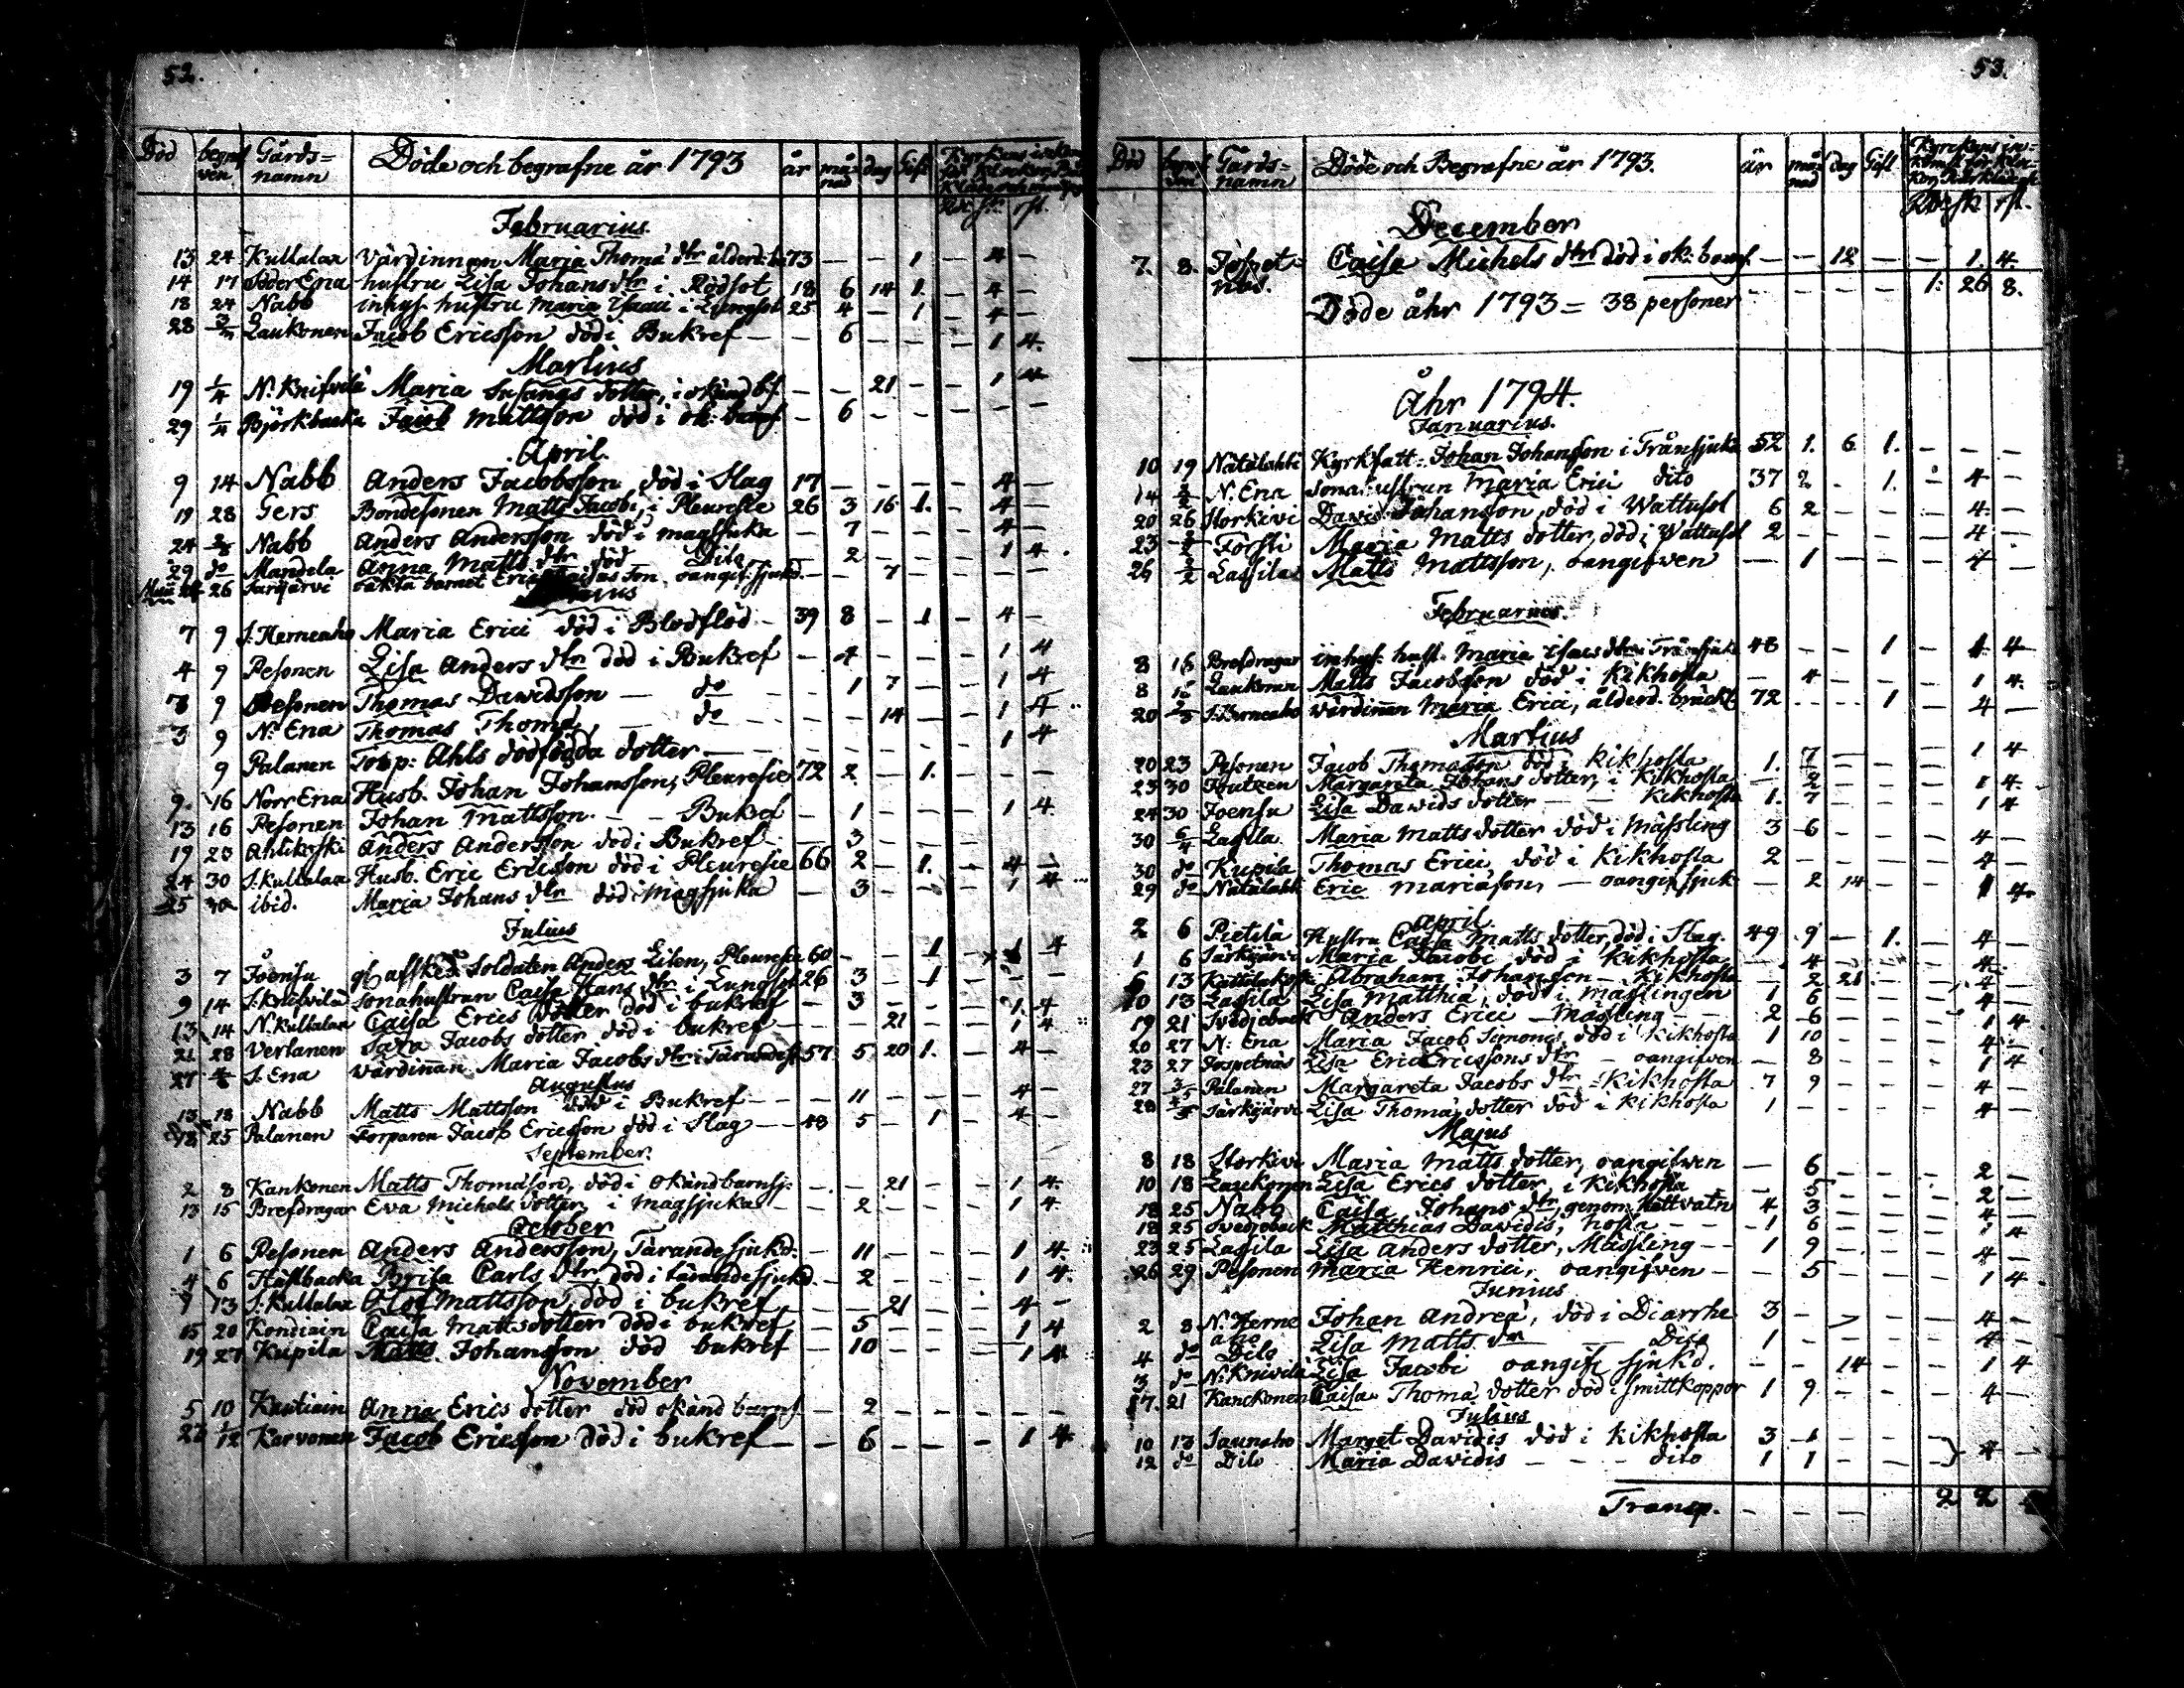 52.
Död begraf ven Gårds= namn Döde och begrafne år 1793 år må= nad dag Gift
Februarius
13 24 Kullalax Värdinnan Maria Thomæ dtr ålderd: 73 — — 1 — 4 —
14 17 Söder Ena hustru Lisa Johans dtr i Rödsot 18 6 14 1. — 4 —
18 24 Nabb inhys. hustru Maria Isaaci i Lungsot 25 4 — 1 — 4 —
28 Laukonen Jacob Ericsson död i Bukref — — 6 — — — 1 4.
Martius
19 1/4 N. Knifvilä Maria Susangs dotter, i okänd bs. — — 21 — — 1 4
29 1/4 Björkbacka Jacob Mattsson död i ok: barns. — 6 — — — — —
April.
9 14 Nabb Anders Jacobsson död i Slag 17 — — — — 4 —
19 28 Gers Bondesonen Matts Jacobi, i Pleuresie 26 3 16 1. — 4 —
24 Nabb Anders Andersson död i magsjuka — 7 — — — 4 —
29 do Mandela Anna Matts dtr död Dito — 2 — — — 1 4.
26 Särkjärvi oäkta barnet Eric son oangif. sjukd. — — 7 — — — —
7 9 S. Herneaho Maria Erici död i Blodflöd — 39 8 — 1 — 4 —
4 9 Pesonen Lisa Anders dtr död i Bukref — 4 — — — 1 4
7 9 Pesonen Thomas Davidsson — do — — 1 7 — — 1 4
3 9 N. Ena Thomas Thomæ — do — — — 14 — — 1 4
9 Palanen Torp: Ahls dödfödda dotter — — — — — — 1 4
9. 16 Norr Ena Husb. Johan Johansson, Pleuresie 72 2 — 1. — — —
13 16 Pesonen Johan Mattsson — — Bukref — 1 — — — 1 4.
19 23 Ahlskoski Anders Andersson död i Bukref — 3 — — — — —
24 30 S. Kullalax Husb. Eric Ericsson död i Pleuresie 66 2 — 1. — 4 —
25 30 ibid. Maria Johans dtr död i Magsjuka — 3 — — — 1 4
Julius
3 7 Joensu afsked. Soldaten Anders Lilen, Pleuresie 60 — — 1 — 1 4
9 14 S. Knifvilä Sonahustrun Caisa Hans dtr i Lungsot 26 3 — 1 — — —
13 14 N. Kullalax Caisa Erics dotter död i bukref — 3 — — — 1. 4
21 28 Verlanen Sara Jacobs dotter död i bukref — — — 21 — — 1 4
27 4/8 S. Ena Värdinnan Maria Jacobs dtr i Tärandes. 57 5 20 1. — 4 —
Augustus
13 18 Nabb Matts Mattsson död i Bukref — — — 11 — — — 4 —
18 25 Palanen Torparen Jacob Ericsson död i Slag — 48 5 — 1 — 4 —
September.
2 8 Kankonen Matts Thomasson, död i okänd barnsj. — — 21 — — 1 4.
13 15 Brefdragar Eva Michels dotter i Magsjuka — — 2 — — — 1 4.
October
1 6 Pesonen Anders Andersson, Tärandesjukd: — 11 — — — 1 4.
4 6 Hästbacka Brita Carls dtr död i tärandesjukd. — 2 — — — 1 4.
9 13 S. Kullalax Olof Mattsson död i bukref — — — 21 — — 4 —
15 20 Kondiain Caisa Matts dotter död i bukref — 5 — — — 1 4
19 27 Kupila Matts Johansson död bukref — 10 — — — 1 4
November
5 10 Kautiain Anna Erics dotter död okänd barns. — 2 — — — — —
1/12 Korvonen Jacob Ericsson död i bukref — — 6 — — — 1 4.
53.
Död begraf ven Gårds= namn Döde och Begrafne år 1793. år må= nad dag Gift Kyrkans in=
December
7. 8. Caisa Michels dtr död i ok: barns. — — 12 — — 1. 4.
Döde åhr 1793 = 38 personer — — — — 1: 26 8.
Åhr 1794.
Januarius.
10 19 Nätälahti Kyrkfatt: Johan Johansson i Trånsjuka 52 1. 6 1. — — —
14 2/2 N. Ena Sonahustrun Maria Erici dito 37 2 — 1. — 4 —
20 26 Storkivi David Johansson, död i Wattusot 6 2 — — — 4 —
23 2/2 Försti Maria Matts dotter, död i Wattusot 2 — — — — 4 —
26 2/2 Lassila Matts Mattsson, oangifven — 1 — — — 4 —
Februarius.
8 16 Brefdragar inhys. hust. Maria Isacs dtr i Trånsjuka 48 — — 1 — 1 4
8 16 Laukonen Matts Jacobsson död i Kikhosta — 4 — — — 1 4.
20 2/3 S. Herneaho Värdinnan Maria Erici, ålderd. bräckl. 72 — — 1 — 4 —
Martius
20 23 Pesonen Jacob Thomasson död i Kikhosta 1. 7 — — — 1 4
23 30 Margareta Johans dotter, i Kikhosta — 2 — — — 1 4.
24 30 Joensu Lisa Davids dotter — — Kikhosta 1. 7 — — — 1 4
30 6/4 Lassila Maria Matts dotter död i Mässling 3 6 — — — 4 —
30 do Kupila Thomas Erici död i Kikhosta 2 — — — — 4 —
29 do Nätälaht Eric Mariason, — oangif. sjuk. — 2 14 — — 1 4.
April.
2 6 Pietilä Hustru Caisa Matts dotter, död i Slag. 49 9 — 1. — 4 —
1 6 Särkijärvi Maria Jacobi död i Kikhosta — 4 — — — 4 —
6 13 Kattilakoski Abraham Johansson — Kikhosta — 2 21 — — 4 —
10 13 Lassila Lisa Matthiæ, död i mässlingen 1 6 — — — 4 —
19 21 Svedjeback Anders Erici — Mässling — 2 6 — — — 1 4
20 27 N: Ena Maria Jacob Simonis, död i Kikhosta 1 10 — — — 4 —
23 27 Jospetnäs Lisa Eric Ericssons dtr — oangifven — 8 — — — 1 4
27 3/5 Palanen Margareta Jacobs dtr = Kikhosta 7 9 — — — 4 —
28 4/5 Särkijärvi Lisa Thomæ dotter död i Kikhosta 1 — — — — 4 —
Majus
8 18 Storkivi Maria Matts dotter, oangifven — 6 — — — 2 —
10 18 Laukonen Lisa Erics dotter, i Kikhosta — 5 — — — 2 —
18 25 Nabb Caisa Johans dtr, genom hett vatn 4 3 — — — 4 —
18 25 Svedjeback Matthias Davidis, hosta — — 1 6 — — — 1 4
23 25 Lassila Lisa Anders dotter, Mässling — 1 9 — — — 4 —
26 29 Pesonen Maria Henrici, oangifven — — 5 — — — 1 4
Junius
2 8 N. Herne aho Johan Andreæ, död i Diarrhe 3 — — — — 4 —
4 do Dito Lisa Matts dtr Dito 1 — — — — 4 —
3 do N. Knivilä Lisa Jacobi oangif. sjukd. — — 14 — — 1 4
17. 21 Kanckonen Caisa Thomæ dotter död i Smittkoppor 1 9 — — — 4 —
Julius
10 13 Saunaho Marget Davidis död i Kikhosta 3 1 — — — 4 —
12 do Dito Maria Davidis — — — dito 1 1 — — —
Transp. — — — 2 2